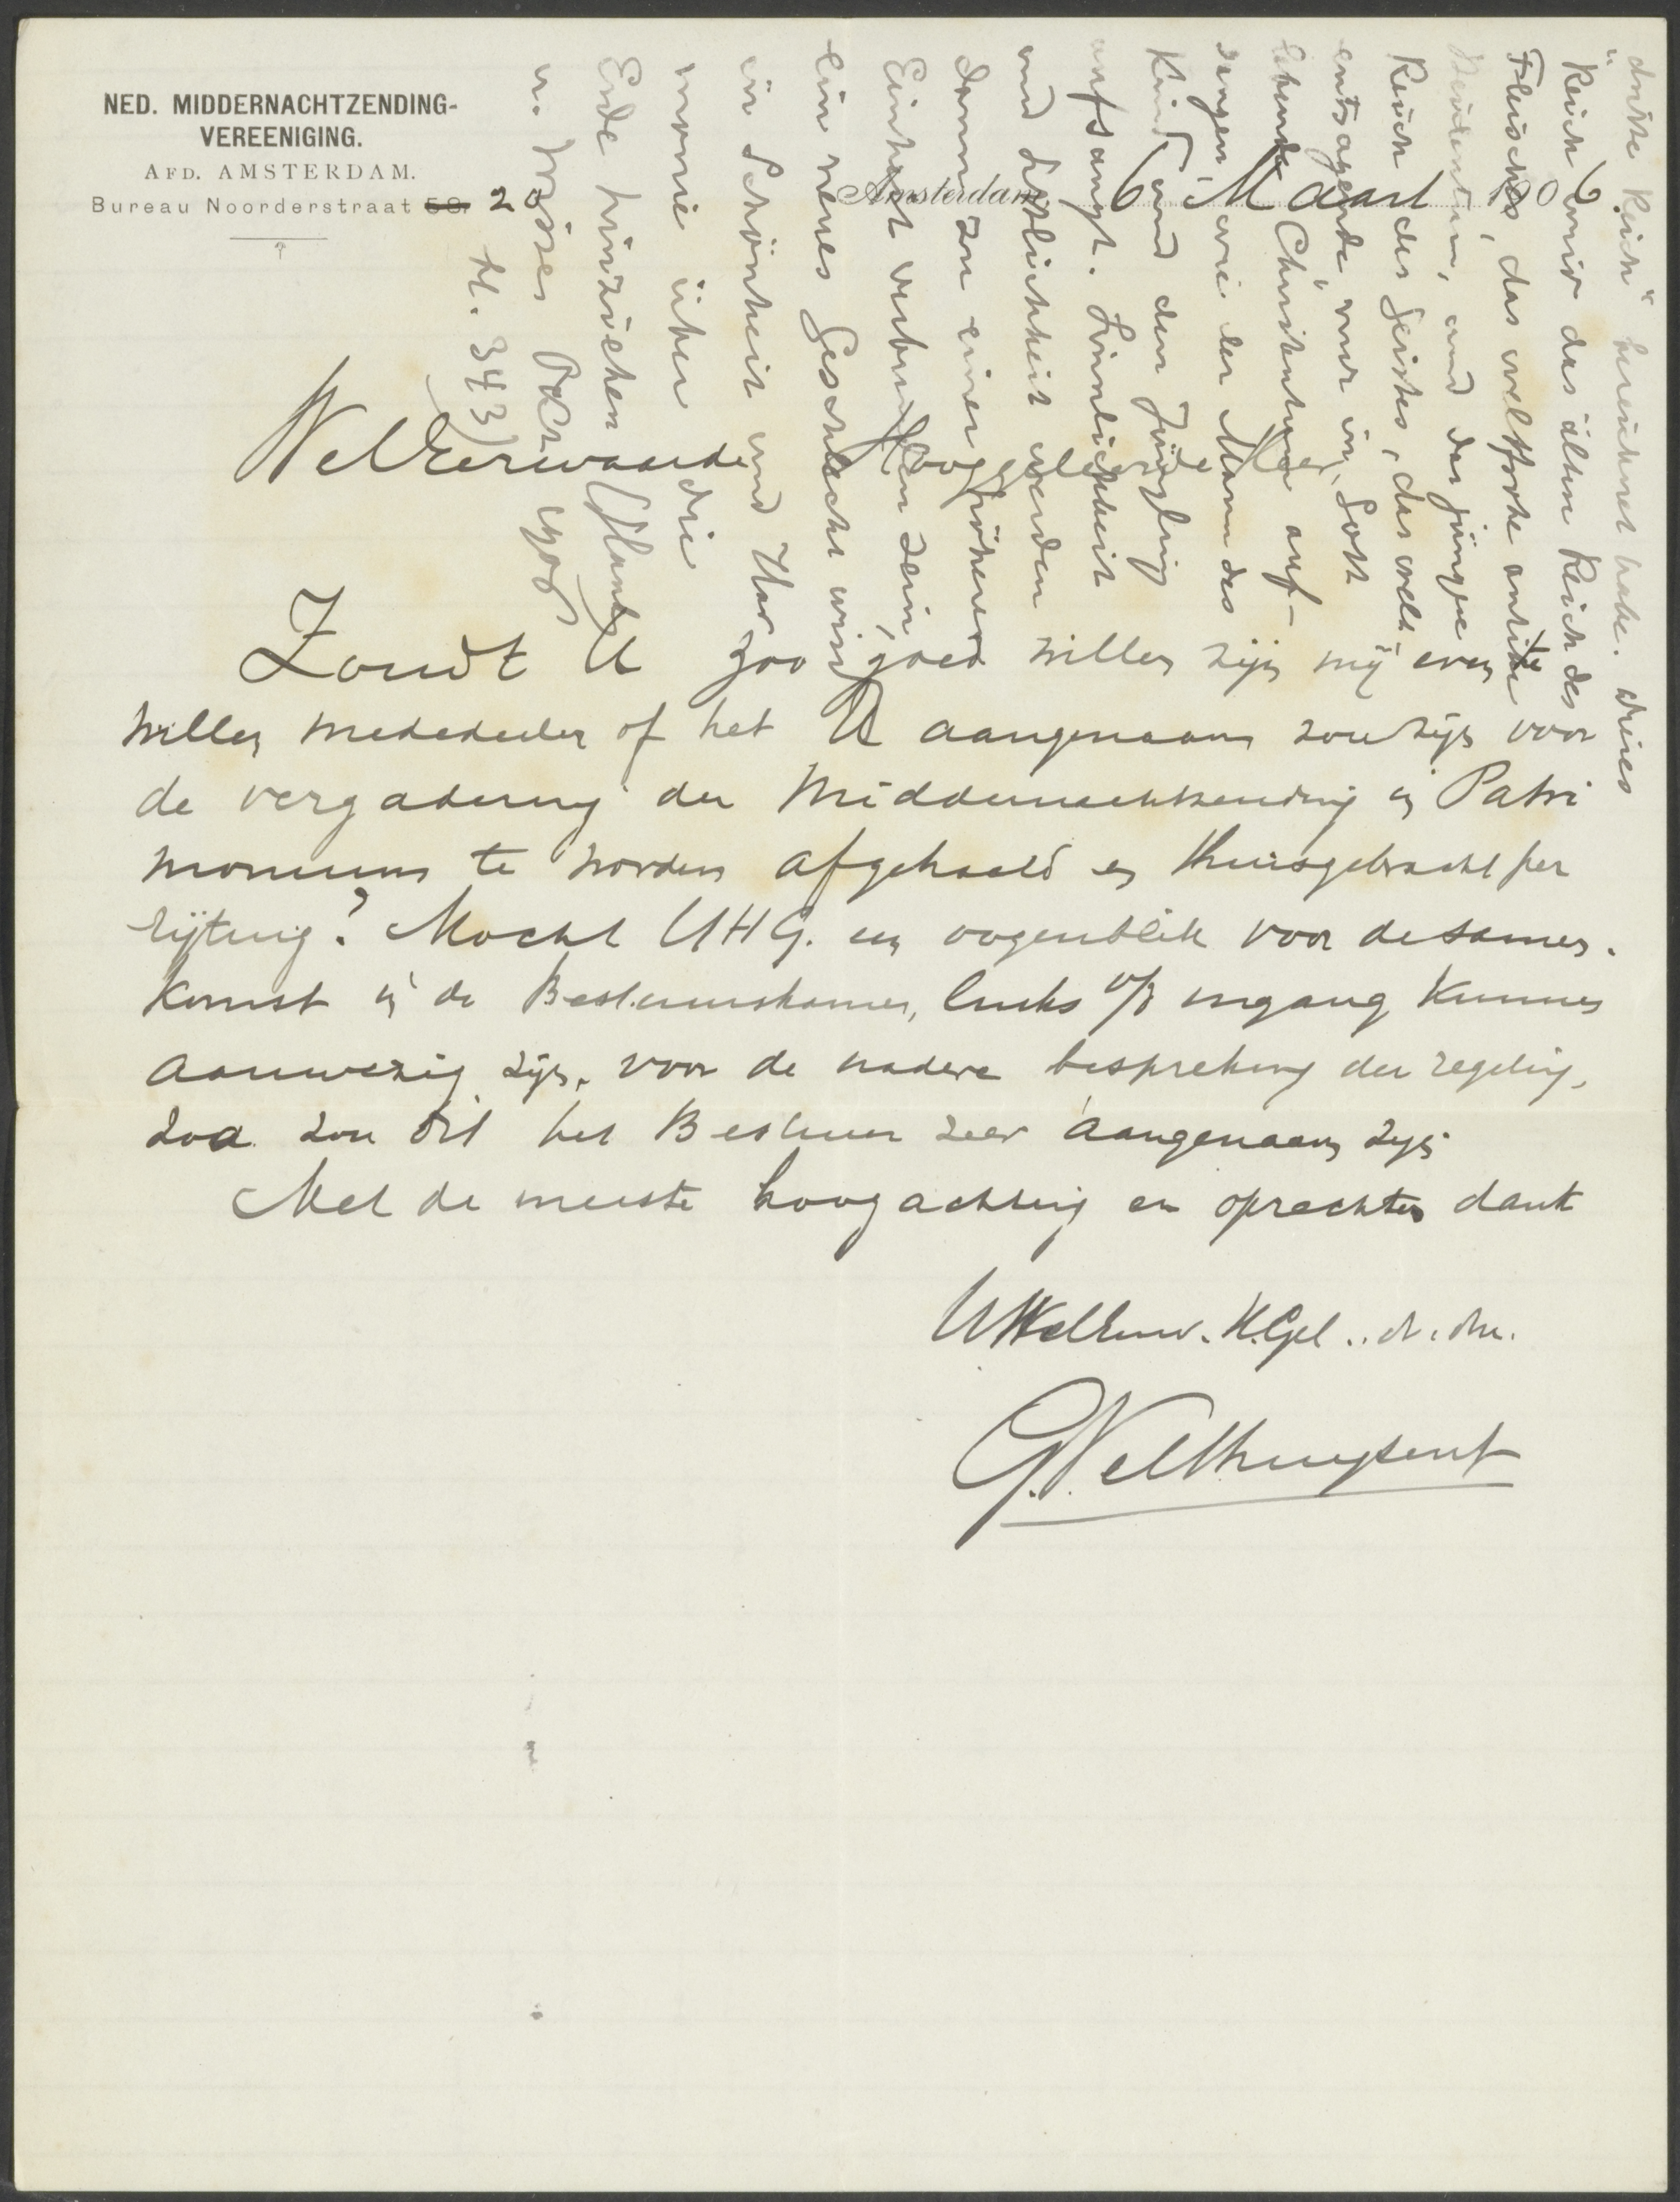 NED. MIDDERNACHTZENDING-
VEREENIGING.
AFD. AMSTERDAM.
Bureau Noorderstraat 20
Amsterdam, 6 Maart 1906
WelEerwaarde Hooggeleerde Heer,
Zoudt U zoo goed willen zijn mij even te
willen mededeelen of het U aangenaam zou zijn voor
de vergadering der Middernachtzending in Patri
monium te worden afgehaald en thuisgebracht per
rijtuig? Mocht UHG. een oogenblik voor de samen-
komst in de Bestuurskamer, links v/d ingang kunnen
aanwezig zijn, voor de nadere bespreking der regeling,
zoo zou dit het Bestuur zeer aangenaam zijn.
Met de meeste hoogachting en oprechten dank
UWelEerw. H.Gel. d. dr.
G. Velthuysen
dritte Reich" bezeichnet habe. Dieses
Reich wird das ältere Reich des
Fleisches, das weltfrohe antike
Heidentum, und das jüngere
Reich des Geistes, das welt-
entsagende, nur in Gott
lebende Christentum auf-
saugen wie der Mann das
Kind und den Jüngling
aufsaugt. Sinnlichkeit
und Sittlichkeit werden
dann zu einer höheren
Einheit verbunden sein,
ein neues Geschlecht wird
in Schönheit und Har
monie über die
Erde hinziehen (Hans
v. Wolzogen 1908
bl. 343)